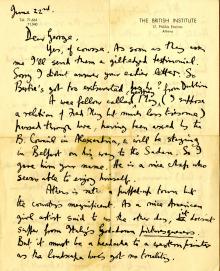 June 22nd.
THE BRITISH INSTITUTE
17, Philikis Eterias
Athens
Tel. 71.664
Dear George,
Yes, of course. As soon as they
me I'll send them a testimonial.
Sorry I didn't answer your earlier letter. So
Bertie's got too extravert from
A was fellow called (I suppose
a relation of Fred Hoy but much less tiresome)
passed through here, having been used by the
B. Council in Alexandria, & will be staying
in Belfast on his way to the Sudan. So I
gave him your name. He is a nice chap who
seems able to enjoy himself.
Athens is a town but
the country's magnificent. As a nice American
girl artist said to me the other day, it doesn't
suffer from Italy's God-damn picturesqueness.
But it must be a headache to a painter
as the landscape has got no tonality.